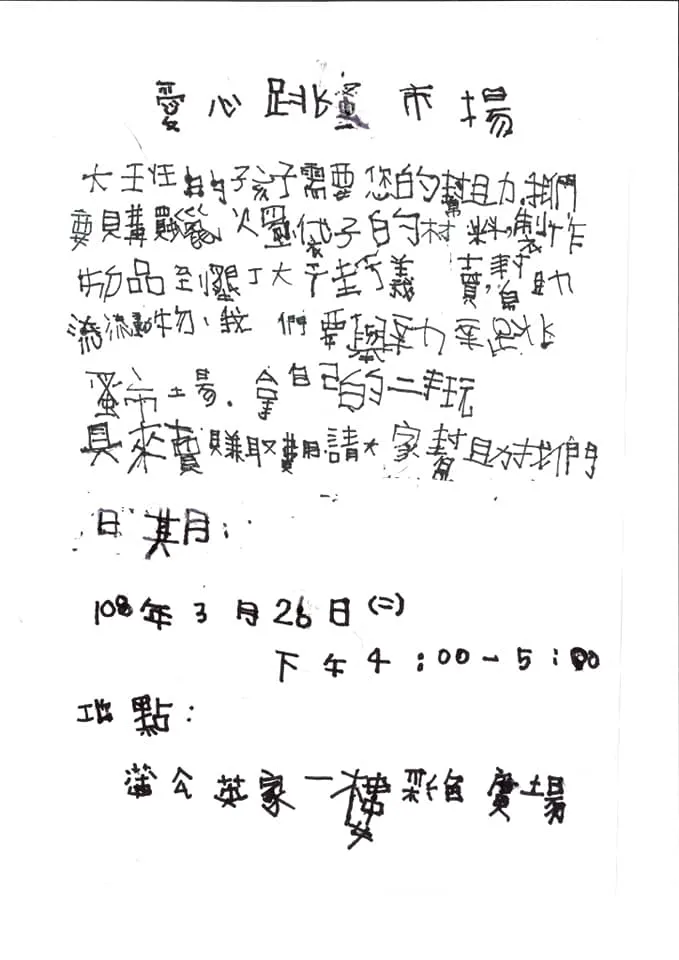 愛心跳蚤市場
大班的孩子需要您的幫助,我們
要購買蠟燭、袋子的材料,製作
物品到墾丁大街義賣,幫助
流浪動物、我們要舉辦跳
蚤市場.拿自己的二手玩
具來賣賺取費用.請大家幫助我們
日期:
108年3月26日(二)
下午4:00-5:00
地點:
蒲公英家一樓彩色廣場